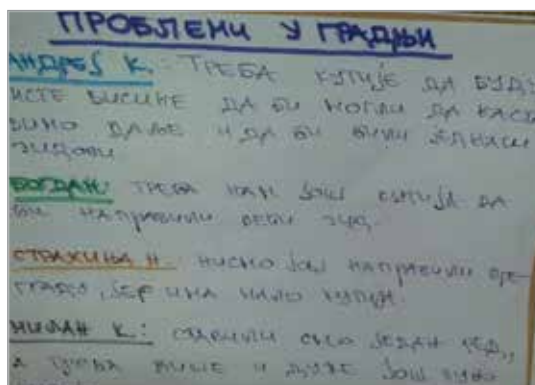 ПРОБЛЕМИ У ГРАДЊИ
АНДРЕЈ К.: ТРЕБА КУТИЈЕ ДА БУДУ
ИСТЕ ВИСИНЕ ДА БИ МОГЛИ ДА
ДАЉЕ И ДА БИ БИЛИ ЈЕДНАКИ
ЗИДОВИ
БОГДАН: ТРЕБА НАМ ЈОШ КУТИЈА ДА
БИ НАПРАВИЛИ ВЕЋИ ЗИД.
СТРАХИЊА Н.: НИСМО ЈОШ НАПРАВИЛИ
ЈЕР ИМА МАЛО КУТИЈА.
МИЛАН К.: СТАВИЛИ СМО ЈЕДАН РЕД,
А ТРЕБА ВИШЕ И ДУЖЕ ЈОШ